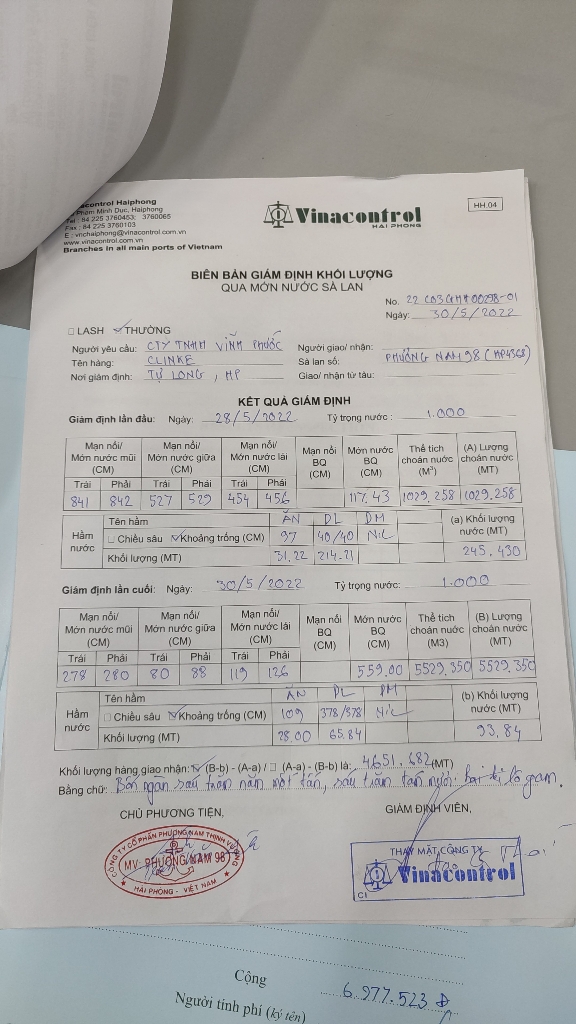 acontrol Haiphong
Phạm Minh Duc, Haiphong
Tel : 84 225 3760453; 3760065
Fax : 84 225 3760103
E : vnchaiphong@vinacontrol.com.vn
www.vinacontrol.com.vn
Branches in all main ports of Vietnam
Vinacontrol
HẢI PHÒNG
HH.04
BIÊN BẢN GIÁM ĐỊNH KHỐI LƯỢNG
QUA MỚN NƯỚC SÀ LAN
No. 22 C03GHH 00298-01
Ngày: 30/5/2022
LASH THƯỜNG
Người yêu cầu: CTY TNHH VĨNH PHƯỚC Người giao/ nhận:
Tên hàng: CLINKE Sà lan số: PHƯƠNG NAM 98 (HP4368)
Nơi giám định: TỰ LONG, HP Giao/ nhận từ tàu:
KẾT QUẢ GIÁM ĐỊNH
Giám định lần đầu: Ngày: 28/5/2022 Tỷ trọng nước : 1.000
Mạn nổi/ Mớn nước mũi (CM) Mạn nổi/ Mớn nước giữa (CM) Mạn nổi/ Mớn nước lái (CM) Mạn nổi BQ (CM) Mớn nước BQ (CM) Thể tích choán nước (M³) (A) Lượng choán nước (MT)
Trái Phải Trái Phải Trái Phải
841 842 527 529 454 456 117.43 1029.258 1029.258
Hầm nước Tên hầm ĂN DL DM (a) Khối lượng nước (MT)
Chiều sâu Khoảng trống (CM) 97 40/40 Nil
Khối lượng (MT) 31.22 214.21 245.430
Giám định lần cuối: Ngày: 30/5/2022 Tỷ trọng nước: 1.000
Mạn nổi/ Mớn nước mũi (CM) Mạn nổi/ Mớn nước giữa (CM) Mạn nổi/ Mớn nước lái (CM) Mạn nổi BQ (CM) Mớn nước BQ (CM) Thể tích choán nước (M3) (B) Lượng choán nước (MT)
Trái Phải Trái Phải Trái Phải
278 280 80 88 119 126 559.00 5529.350 5529.350
Hầm nước Tên hầm ĂN DL DM (b) Khối lượng nước (MT)
Chiều sâu Khoảng trống (CM) 109 378/378 Nil
Khối lượng (MT) 28.00 65.84 93.84
Khối lượng hàng giao nhận: (B-b) - (A-a) / (A-a) - (B-b) là: 4651.682 (MT)
Bằng chữ: Bốn ngàn sáu trăm năm mốt tấn, sáu trăm tám mươi hai kilôgam.
CHỦ PHƯƠNG TIỆN,
GIÁM ĐỊNH VIÊN,
CÔNG TY CỔ PHẦN PHƯƠNG NAM THỊNH VƯỢNG
MV. PHƯƠNG NAM 98
HẢI PHÒNG - VIỆT NAM
THAY MẶT CÔNG TY
Vinacontrol
CI
Cộng 6.977.523 đ
Người tính phí (ký tên)